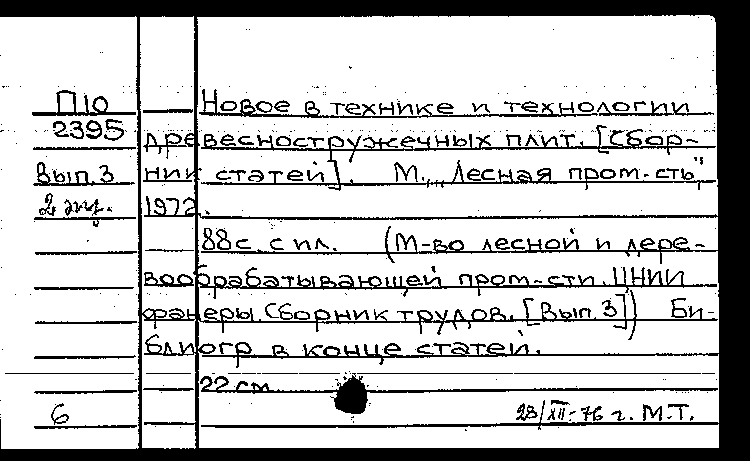 П10 Новое в технике и технологии
2395 древесностружечных плит. [Сбор-
Вып. 3 ник статей]. М., „Лесная пром-сть",
2 экз. 1972.
88 с. с ил. (М-во лесной и дере-
вообрабатывающей пром-сти. ЦНИИ
фанеры. Сборник трудов. [Вып. 3]) Би-
блиогр в конце статей.
22 см
6 28/XII-76 г. М.Т.